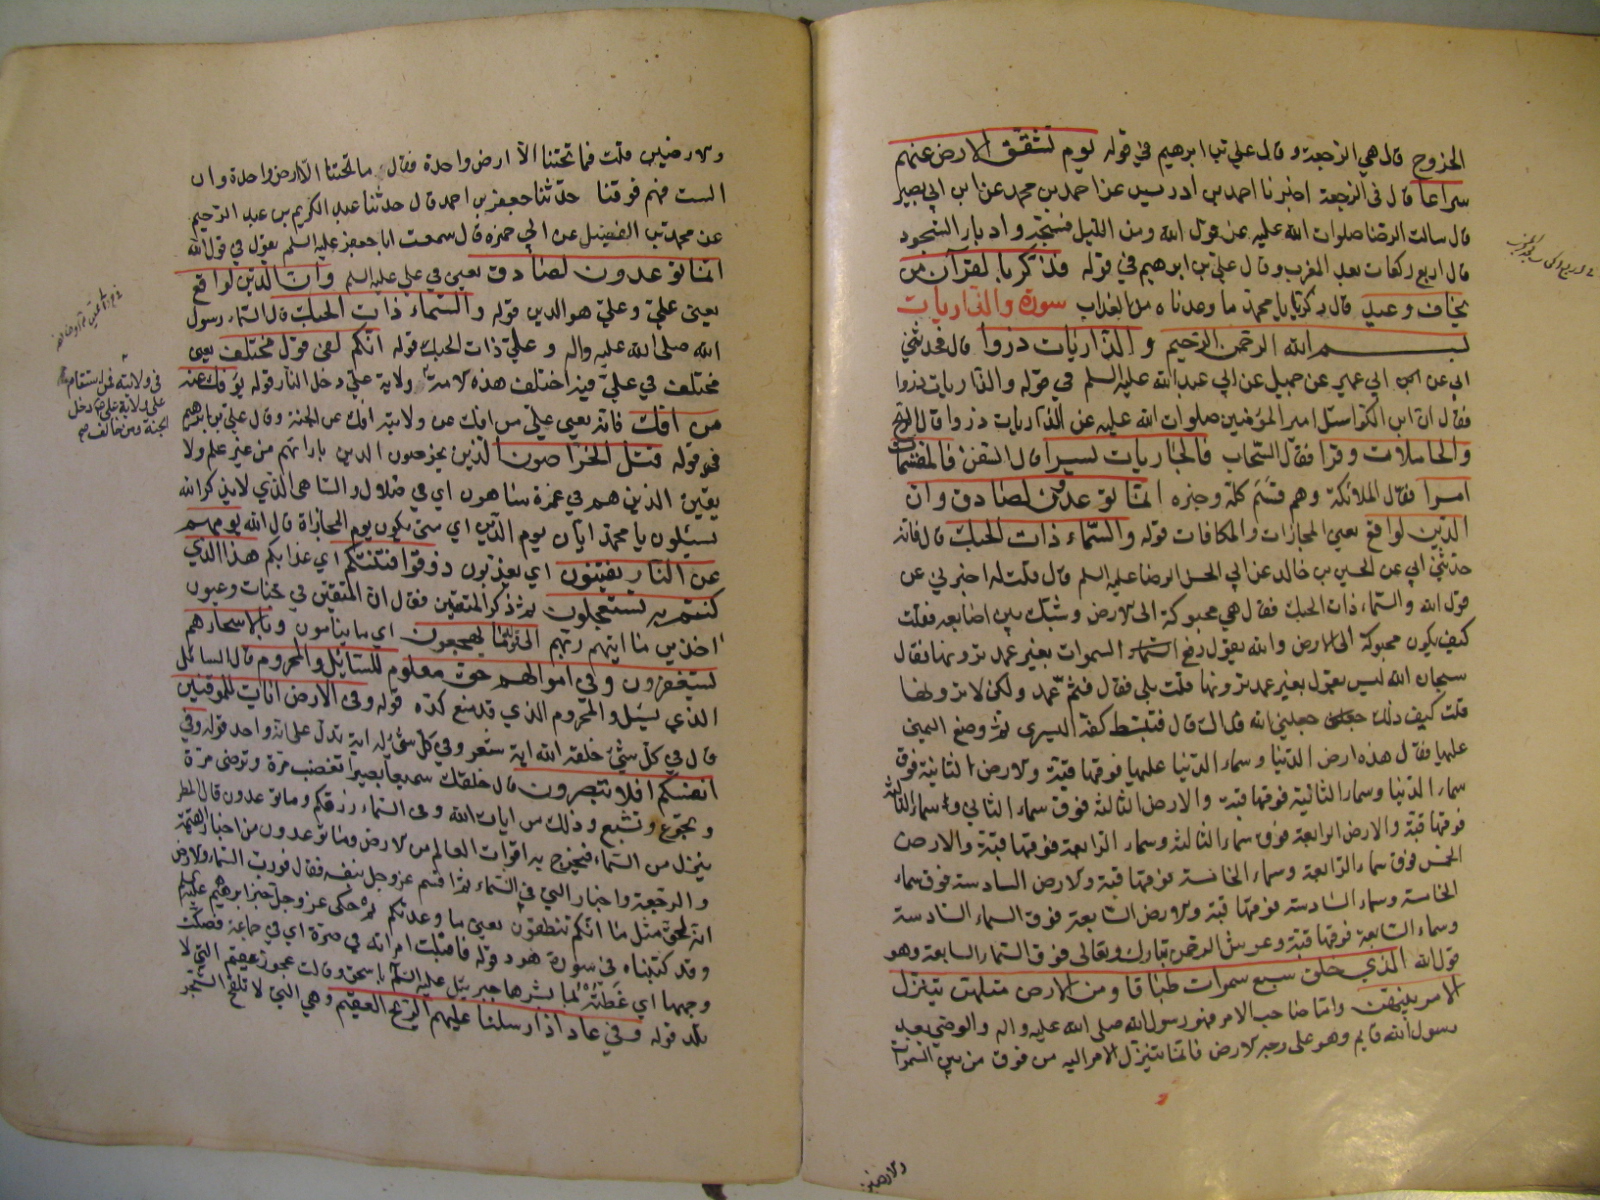 الخروج قال هي الرجعة و قال علي بن ابرهيم في قوله يوم تشقق الارض عنهم
سراعا قال في الرجعة اخبرنا احمد بن ادريس عن احمد بن محمد عن ابن ابي بصير
قال سالت الرضا صلوات الله عليه عن قول الله ومن الليل فسبحه وادبار السجود
قال اربع ركعات بعد المغرب وقال علي بن ابرهيم في قوله فذكر بالقرآن من
يخاف وعيد قال ذكر يا محمد ما وعدناه من العذاب سورة والذاريات
بسم الله الرحمن الرحيم و الذاريات ذروا قال فحدثني
ابي عن ابن ابي عمير عن جميل عن ابي عبد الله عليه السلم في قوله والذاريات ذروا
فقال ان ابن الكوا سئل امير المؤمنين صلوات الله عليه عن الذاريات ذروا قال الريح
والحاملات وقرا فقال السحاب فالجاريات يسرا قال السفن فالمقسمات
امرا فقال الملائكة وهم قسم كله وخبره انما توعدون لصادق وان
الدين لواقع يعني المجازات والمكافات قوله والسماء ذات الحبك قال فانه
حدثني ابي عن الحسين بن خالد عن ابي الحسن الرضا عليه السلم قال قلت له اخبرني عن
قول الله والسماء ذات الحبك فقال هي محبوكة الى الارض وشبك بين اصابعه فقلت
كيف يكون محبوكة الى الارض والله يقول رفع السموات بغير عمد ترونها فقال
سبحان الله اليس يقول بغير عمد ترونها قلت بلى فقال فثم عمد ولكن لا ترونها
قلت كيف ذلك جعلني الله فداك قال فبسط كفه اليسرى ثم وضع اليمنى
عليها فقال هذه ارض الدنيا وسماء الدنيا عليها فوقها قبة والارض الثانية فوق
سماء الدنيا وسماء الثانية فوقها قبة والارض الثالثة فوق سماء الثاني و سماء الثالثة
فوقها قبة والارض الرابعة فوق سماء الثالثة وسماء الرابعة فوقها قبة والارض
الخمس فوق سماء الرابعة وسماء الخامسة فوقها قبة والارض السادسة فوق سماء
الخامسة وسماء السادسة فوقها قبة والارض السابعة فوق السماء السادسة
وسماء السابعة فوقها قبة وعرش الرحمن تبارك وتعالى فوق السماء السابعة وهو
قول الله الذي خلق سبع سموات طباقا ومن الارض مثلهن يتنزل
الامر بينهن واما صاحب الامر فهو رسول الله صلى الله عليه واله والوصي بعد
رسول الله قايم وهو على وجه الارض فانما يتنزل الامر اليه من فوق من بين السموات
والارضين
والارضين قلت فما تحتنا الا ارض واحدة فقال ما تحتنا الا ارض واحدة وان
الست فهم فوقنا حدثنا جعفر بن احمد قال حدثنا عبد الكريم بن عبد الرحيم
عن محمد بن الفضيل عن ابي حمزه قال سمعت ابا جعفر عليه السلم يقول في قول الله
انما توعدون لصادق يعني في علي عليه السلم وان الدين لواقع
يعني علي وعلي هو الدين قوله والسماء ذات الحبك قال السماء رسول
الله صلى الله عليه واله و علي ذات الحبك قوله انكم لفي قول مختلف يعني
مختلف في علي فيه اختلف هذه الامة ولاية علي دخل النار قوله يؤفك عنه
من افك فانه يعني علي من افك عن ولايته افك عن الجنة وقال علي بن ابرهيم
في قوله قتل الخراصون الذين يخرصون الدين بارائهم من غير علم ولا
يقين الذين هم في غمرة ساهون اي في ضلال والساهي الذي لا يذكر الله
يسئلون يا محمد ايان يوم الدين اي متى يكون يوم المجازاة قال الله يوم هم
عن النار يفتنون اي يعذبون ذوقوا فتنتكم اي عذابكم هذا الذي
كنتم به تستعجلون ثم ذكر المتقين فقال ان المتقين في جنات وعيون
اخذين ما اتيهم ربهم الى قوله ما يهجعون اي ما ينامون وبالاسحار هم
يستغفرون وفي اموالهم حق معلوم للسائل والمحروم قال السائل
الذي يسئل والمحروم الذي قد منع كده قوله وفي الارض ايات للموقنين
قال في كل شئ خلقه الله اية شعر وفي كل شئ له اية تدل على انه واحد قوله وفي
انفسكم افلا تبصرون قال خلقك سميعا بصيرا تغضب مرة وترضى مرة
و تجوع و تشبع وذلك من ايات الله وفي السماء رزقكم وما توعدون قال المطر
ينزل من السماء فيخرج به اقوات العالم من الارض وما توعدون من اخبار القيمة
و الرجعة واخبار التي في السماء ثم اقسم عز وجل بنفسه فقال فورب السماء والارض
انه لحق مثل ما انكم تنطقون يعني ما وعدتكم ثم حكى عز وجل خبر ابرهيم عليه السلم
وقد كتبناه في سورة هود قوله فاقبلت امراته في صرة اي في جماعة فصكت
وجهها اي غطته لما بشرها جبرئيل عليه السلم باسحق وقالت عجوز عقيم التي لا
تلد قوله وفي عاد اذ ارسلنا عليهم الريح العقيم وهي التي لا تلقح الشجر
في ولايته فمن استقام
على ولاية علي دخل
الجنة ومن خالف